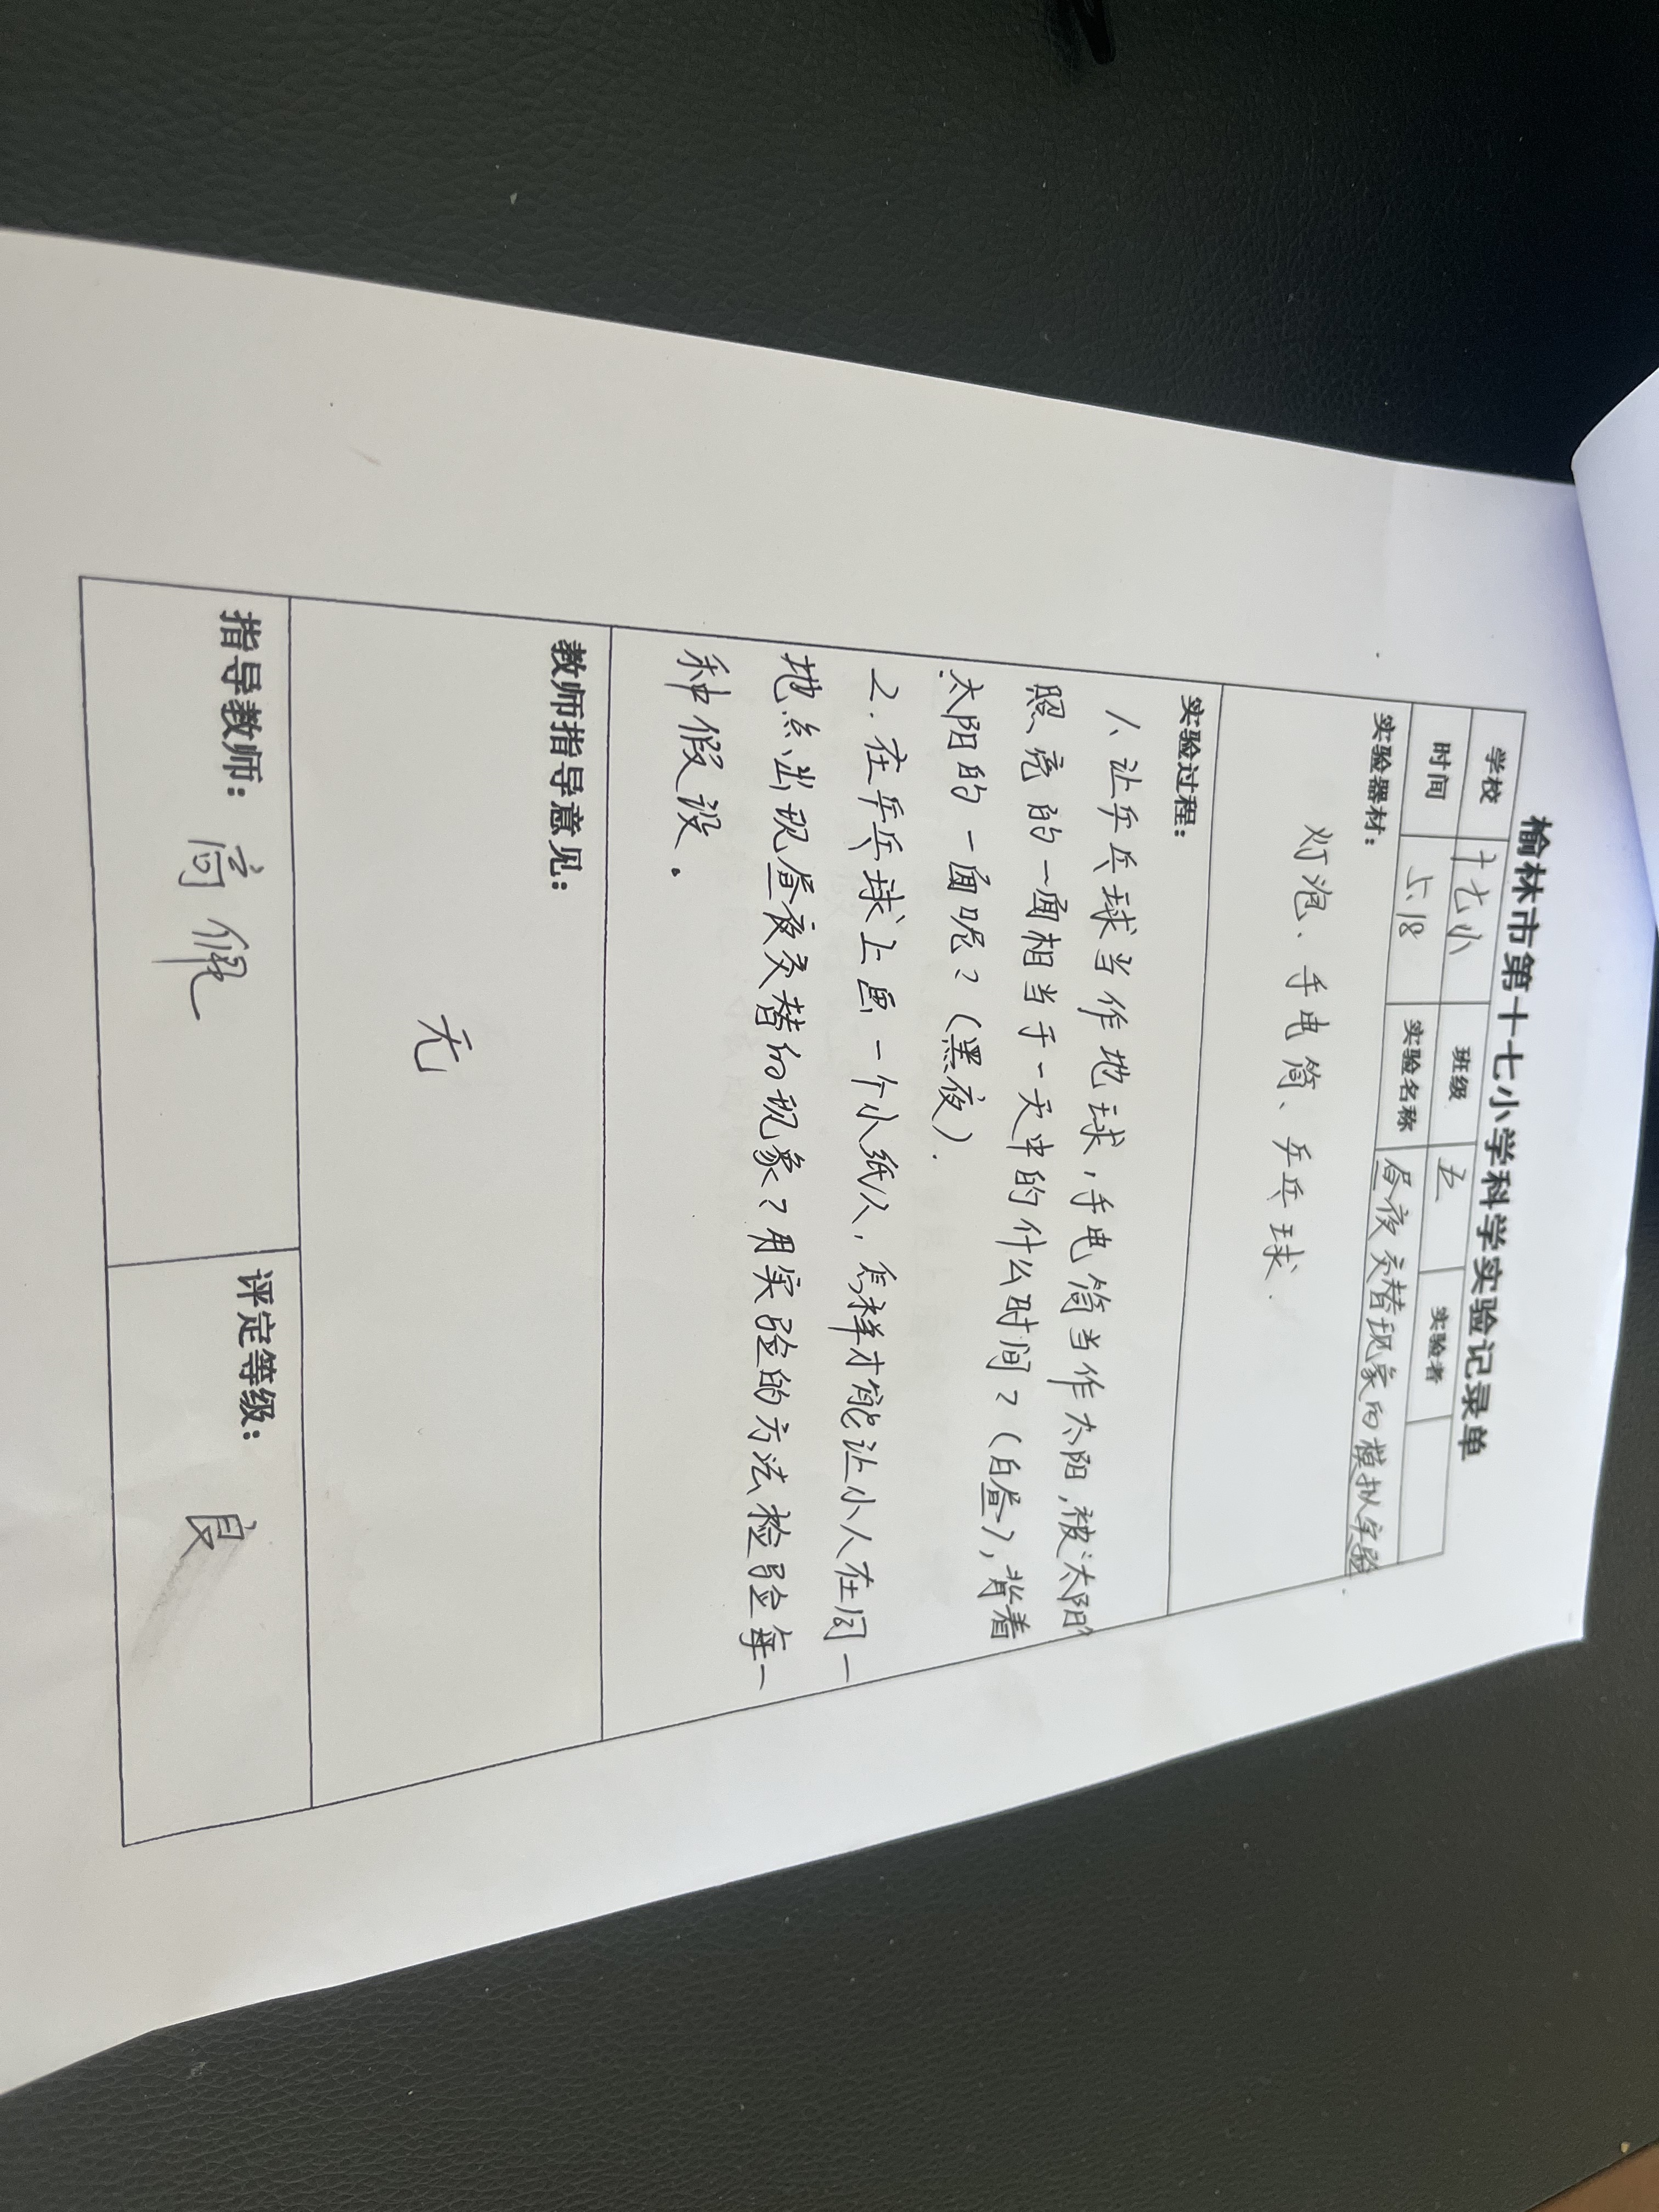 榆林市第十七小学科学实验记录单
学校 十七小 班级 五 实验者
时间 5.18 实验名称 昼夜交替现象的模拟实验.
实验器材：
灯泡、手电筒、乒乓球.
实验过程：
1、让乒乓球当作地球，手电筒当作太阳，被太阳
照亮的一面相当于一天中的什么时间？（白昼），背着
太阳的一面呢？（黑夜）.
2.在乒乓球上画一个小纸人，怎样才能让小人在同一
地点出现昼夜交替的现象？用实验的方法检验每一
种假设。
教师指导意见：
无
指导教师： 高佩 评定等级： 良